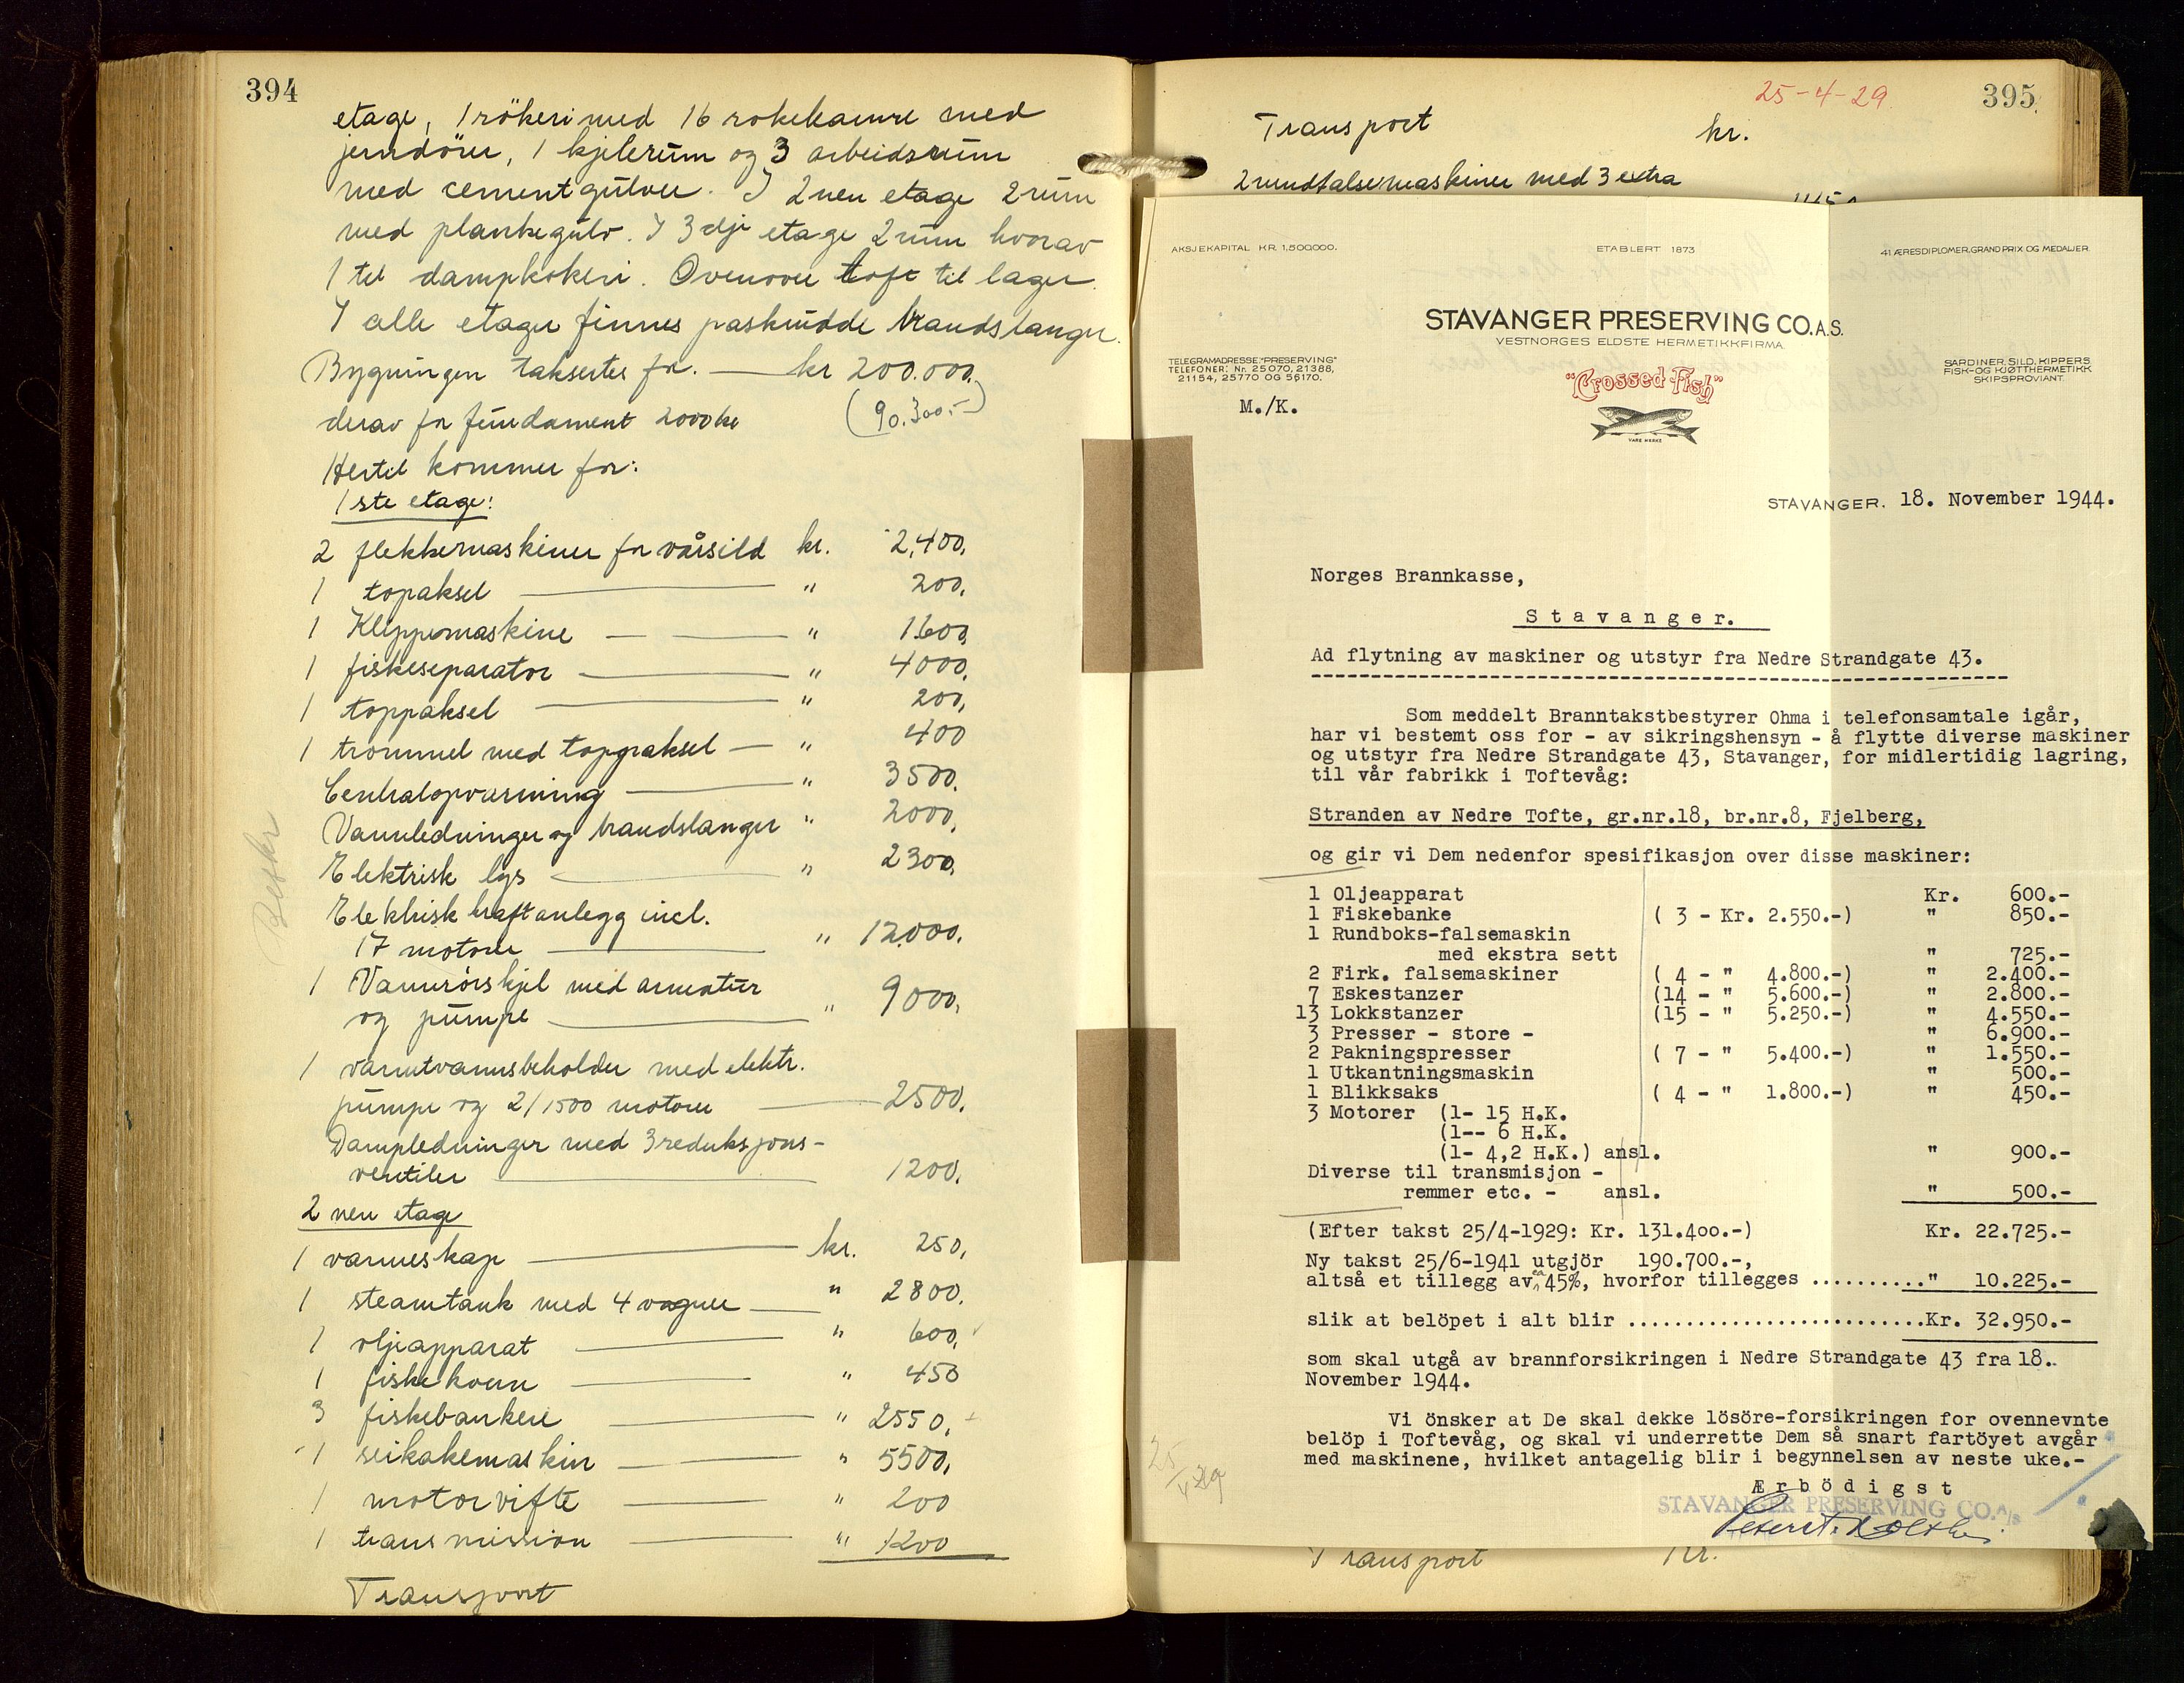 394
etage, 1 rökeri med 16 rokekamre med
jerndörer, 1 kjelerum og 3 arbeidsrum
med cementgulver. I 2nen etage 2 rum
med plankegulv. I 3dje etage 2 rum hvorav
1 til dampkokeri. Ovenover loft til lager.
I alle etager finnes paskrudde brandslanger.
Bygningen taksertes for. — kr 200.000.
derav for fundament 2000 kr (90.300.-)
Hertil kommer for:
1ste etage:
2 flekkemaskiner for vårsild kr. 2,400.
1 topaksel — " 200.
1 Klippemaskine — " 1600.
1 fiskeseparator — " 4000.
1 toppaksel — " 200.
1 trommel med toppaksel — " 400
Centralopvarming — " 3500.
Vannledninger og brandslanger " 2000.
Elektrisk lys — " 2300.
Elektrisk kraftanlegg incl.
17 motorer — " 12.000.
1 Vannrörskjel med armatur
og pumpe — " 9000.
1 varmtvannsbeholder med elektr.
pumpe og 2/1500 motorer — 2500.
Dampledninger med 3 reduksjons-
ventiler — 1200.
2nen etage
1 varmeskap — kr. 250.
1 steamtank med 4 vogner — " 2800.
1 oljeapparat — " 600.
1 fiskekvern — " 450
3 fiskebankere — " 2550.
1 seikakemaskin — " 5500.
1 motorvifte — " 200
1 transmission — " 1200
Transport
25-4-29
395
Transport kr.
2 rundfalsemaskiner med 3 extra
AKSJEKAPITAL KR. 1,500,000.
ETABLERT 1873
41 ÆRESDIPLOMER, GRAND PRIX OG MEDALJER
STAVANGER PRESERVING CO. A.S.
VESTNORGES ELDSTE HERMETIKKFIRMA
TELEGRAMADRESSE: "PRESERVING"
TELEFONER: Nr. 25070, 21388,
21154, 25770 OG 56170.
SARDINER, SILD, KIPPERS
FISK- OG KJØTTHERMETIKK
SKIPSPROVIANT.
"Crossed Fish"
VARE MERKE
M./K.
STAVANGER. 18. November 1944.
Norges Brannkasse,
Stavanger.
Ad flytning av maskiner og utstyr fra Nedre Strandgate 43.
Som meddelt Branntakstbestyrer Ohma i telefonsamtale igår,
har vi bestemt oss for - av sikringshensyn - å flytte diverse maskiner
og utstyr fra Nedre Strandgate 43, Stavanger, for midlertidig lagring,
til vår fabrikk i Toftevåg:
Stranden av Nedre Tofte, gr.nr.18, br.nr.8, Fjelberg,
og gir vi Dem nedenfor spesifikasjon over disse maskiner:
1 Oljeapparat Kr. 600.-
1 Fiskebanke ( 3 - Kr. 2.550.-) " 850.-
1 Rundboks-falsemaskin
med ekstra sett " 725.-
2 Firk. falsemaskiner ( 4 - " 4.800.-) " 2.400.-
7 Eskestanzer (14 - " 5.600.-) " 2.800.-
13 Lokkstanzer (15 - " 5.250.-) " 4.550.-
3 Presser - store - " 6.900.-
2 Pakningspresser ( 7 - " 5.400.-) " 1.550.-
1 Utkantningsmaskin " 500.-
1 Blikksaks ( 4 - " 1.800.-) " 450.-
3 Motorer (1- 15 H.K.
(1-- 6 H.K.
(1- 4,2 H.K.) ansl. " 900.-
Diverse til transmisjon -
remmer etc. - ansl. " 500.-
(Efter takst 25/4-1929: Kr. 131.400.-) Kr. 22.725.-
Ny takst 25/6-1941 utgjör 190.700.-,
altså et tillegg av ca 45%, hvorfor tillegges .........." 10.225.-
slik at belöpet i alt blir .........................Kr. 32.950.-
som skal utgå av brannforsikringen i Nedre Strandgate 43 fra 18..
November 1944.
Vi önsker at De skal dekke lösöre-forsikringen for ovennevnte
belöp i Toftevåg, og skal vi underrette Dem så snart fartöyet avgår
med maskinene, hvilket antagelig blir i begynnelsen av neste uke.-
Ærbödigst
STAVANGER PRESERVING CO. A/S
Transport Kr.